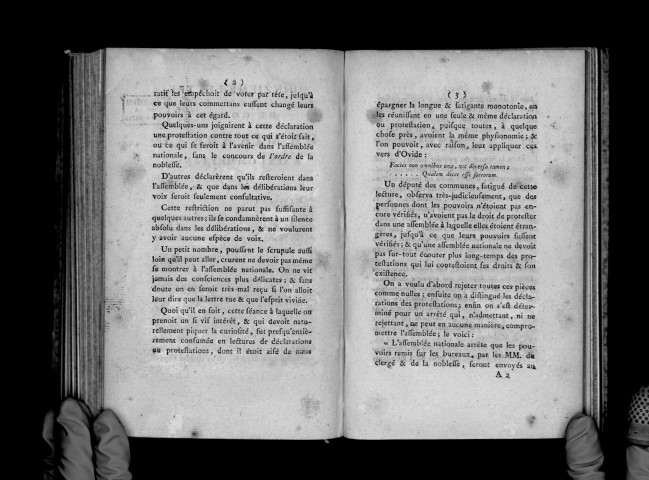 ( 2 )
ratif les empêchoit de voter par tête, jusqu'à
ce que leurs commettans eussent changé leurs
pouvoirs à cet égard.
Quelques-uns joignirent à cette déclaration
une protestation contre tout ce qui s'étoit fait,
ou ce qui se feroit à l'avenir dans l'assemblée
nationale, sans le concours de l'ordre de la
noblesse.
D'autres déclarèrent qu'ils resteroient dans
l'assemblée, & que dans les délibérations leur
voix seroit seulement consultative.
Cette restriction ne parut pas suffisante à
quelques autres ; ils se condamnèrent à un silence
absolu dans les délibérations, & ne voulurent
y avoir aucune espèce de voix.
Un petit nombre, poussant le scrupule aussi
loin qu'il peut aller, crurent ne devoir pas même
se montrer à l'assemblée nationale. On ne vit
jamais des consciences plus délicates ; & sans
doute on en seroit très-mal reçu si l'on alloit
leur dire que la lettre tue & que l'esprit vivifie.
Quoi qu'il en soit, cette séance à laquelle on
prenoit un si vif intérêt, & qui devoit natu-
rellement piquer la curiosité, fut presqu'entiè-
rement consumée en lectures de déclarations
ou protestations, dont il étoit aisé de nous
( 3 )
épargner la longue & fatigante monotonie, en
les réunissant en une seule & même déclaration
ou protestation, puisque toutes, à quelque
chose près, avoient la même physionomie ; &
l'on pouvoit, avec raison, leur appliquer ces
vers d'Ovide :
Facies non omnibus una, nec diversa tamen ;
. . . . . . Qualem decet esse sororum.
Un député des communes, fatigué de cette
lecture, observa très-judicieusement, que des
personnes dont les pouvoirs n'étoient pas en-
core vérifiés, n'avoient pas le droit de protester
dans une assemblée à laquelle elles étoient étran-
gères, jusqu'à ce que leurs pouvoirs fussent
vérifiés ; & qu'une assemblée nationale ne devoit
pas sur-tout écouter plus long-temps des pro-
testations qui lui contestoient ses droits & son
existence.
On a voulu d'abord rejeter toutes ces pièces
comme nulles ; ensuite on a distingué les décla-
rations des protestations ; enfin on s'est déter-
miné pour un arrêté qui, n'admettant, ni ne
rejettant, ne peut en aucune manière, compro-
mettre l'assemblée ; le voici :
« L'assemblée nationale arrête que les pou-
voirs remis sur les bureaux, par les MM. du
clergé & de la noblesse, seront envoyés au
A 2